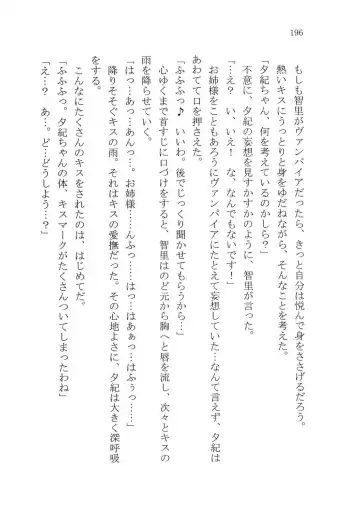 196
もしも智里がヴァンパイアだったら、きっと自分は悦んで身をささげるだろう。
熱いキスにうっとりと身をゆだねながら、そんなことを考えた。
「夕紀ちゃん、何を考えているのかしら?」
不意に、夕紀の妄想を見すかすかのように、智里が言った。
「…え? い、いえ! な、なんでもないです!」
お姉様をこともあろうにヴァンパイアにたとえて妄想していた…なんて言えず、夕紀は
あわてて口を押さえた。
「ふふふっ♪ いいわ。後でじっくり聞かせてもらうから…」
心ゆくまで首すじに口づけをすると、智里はのど元から胸へと唇を流し、次々とキスの
雨を降らせていく。
「はっ…あっ…あんっ…お姉様……んふっ……はっ…はぁっ…はふぅっ…」
降りそそぐキスの雨。それはキスの愛撫だった。その心地よさに、夕紀は大きく深呼吸
をする。
こんなにたくさんのキスをされたのは、はじめてだ。
「ふふふっ。夕紀ちゃんの体、キスマークがたくさんついてしまったわね」
「え…? あ…。ど…どうしよう…?」